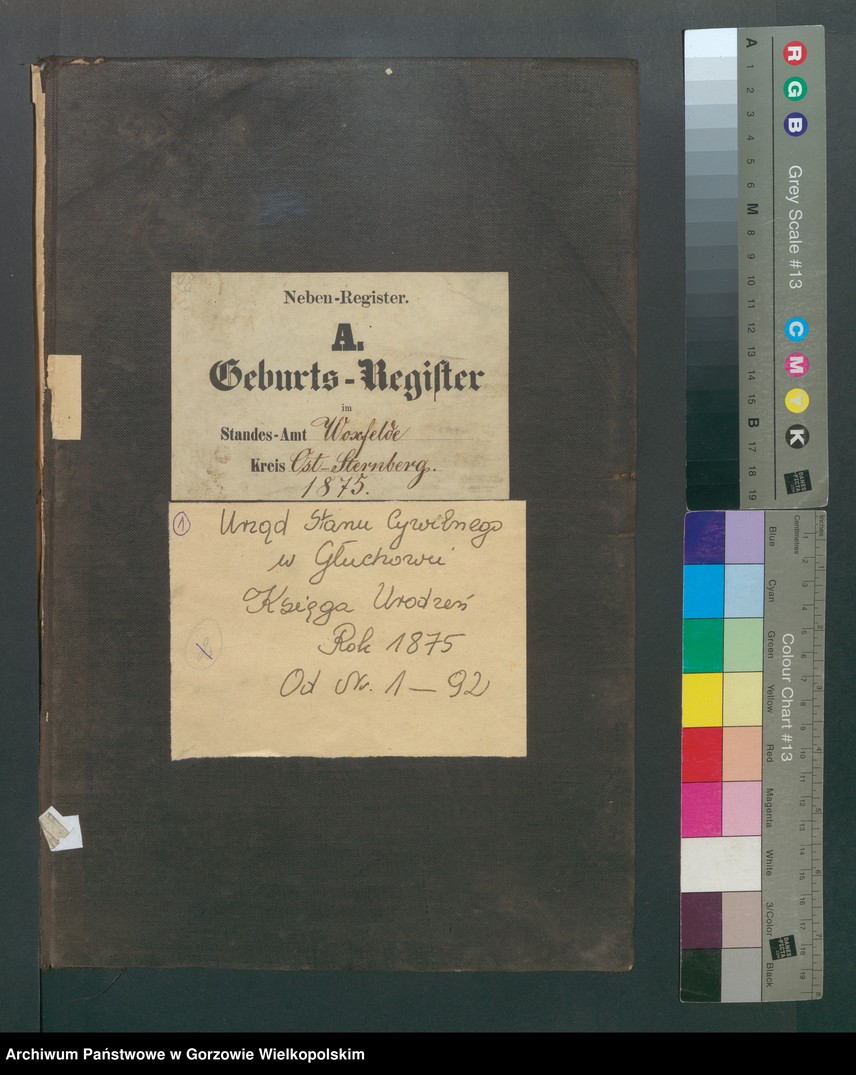 Neben-Register.
A.
Geburts-Regiſter
im
Standes-Amt Woxfelde
Kreis Ost-Sternberg.
1875.
1
Urząd Stanu Cywilnego
w Głuchowie
Księga Urodzeń
Rok 1875
Od Nr. 1 — 92
A 1 2 3 4 5 6 M 8 9 10 11 12 13 14 15 B 17 18 19
R G B
Grey Scale #13
C M Y K
DANES
PICTA
.COM
Blue
Cyan
Green
Yellow
Red
Magenta
White
3/Color
Black
Colour Chart #13
Centimetres
Inches
DANES
PICTA
.COM
Archiwum Państwowe w Gorzowie Wielkopolskim